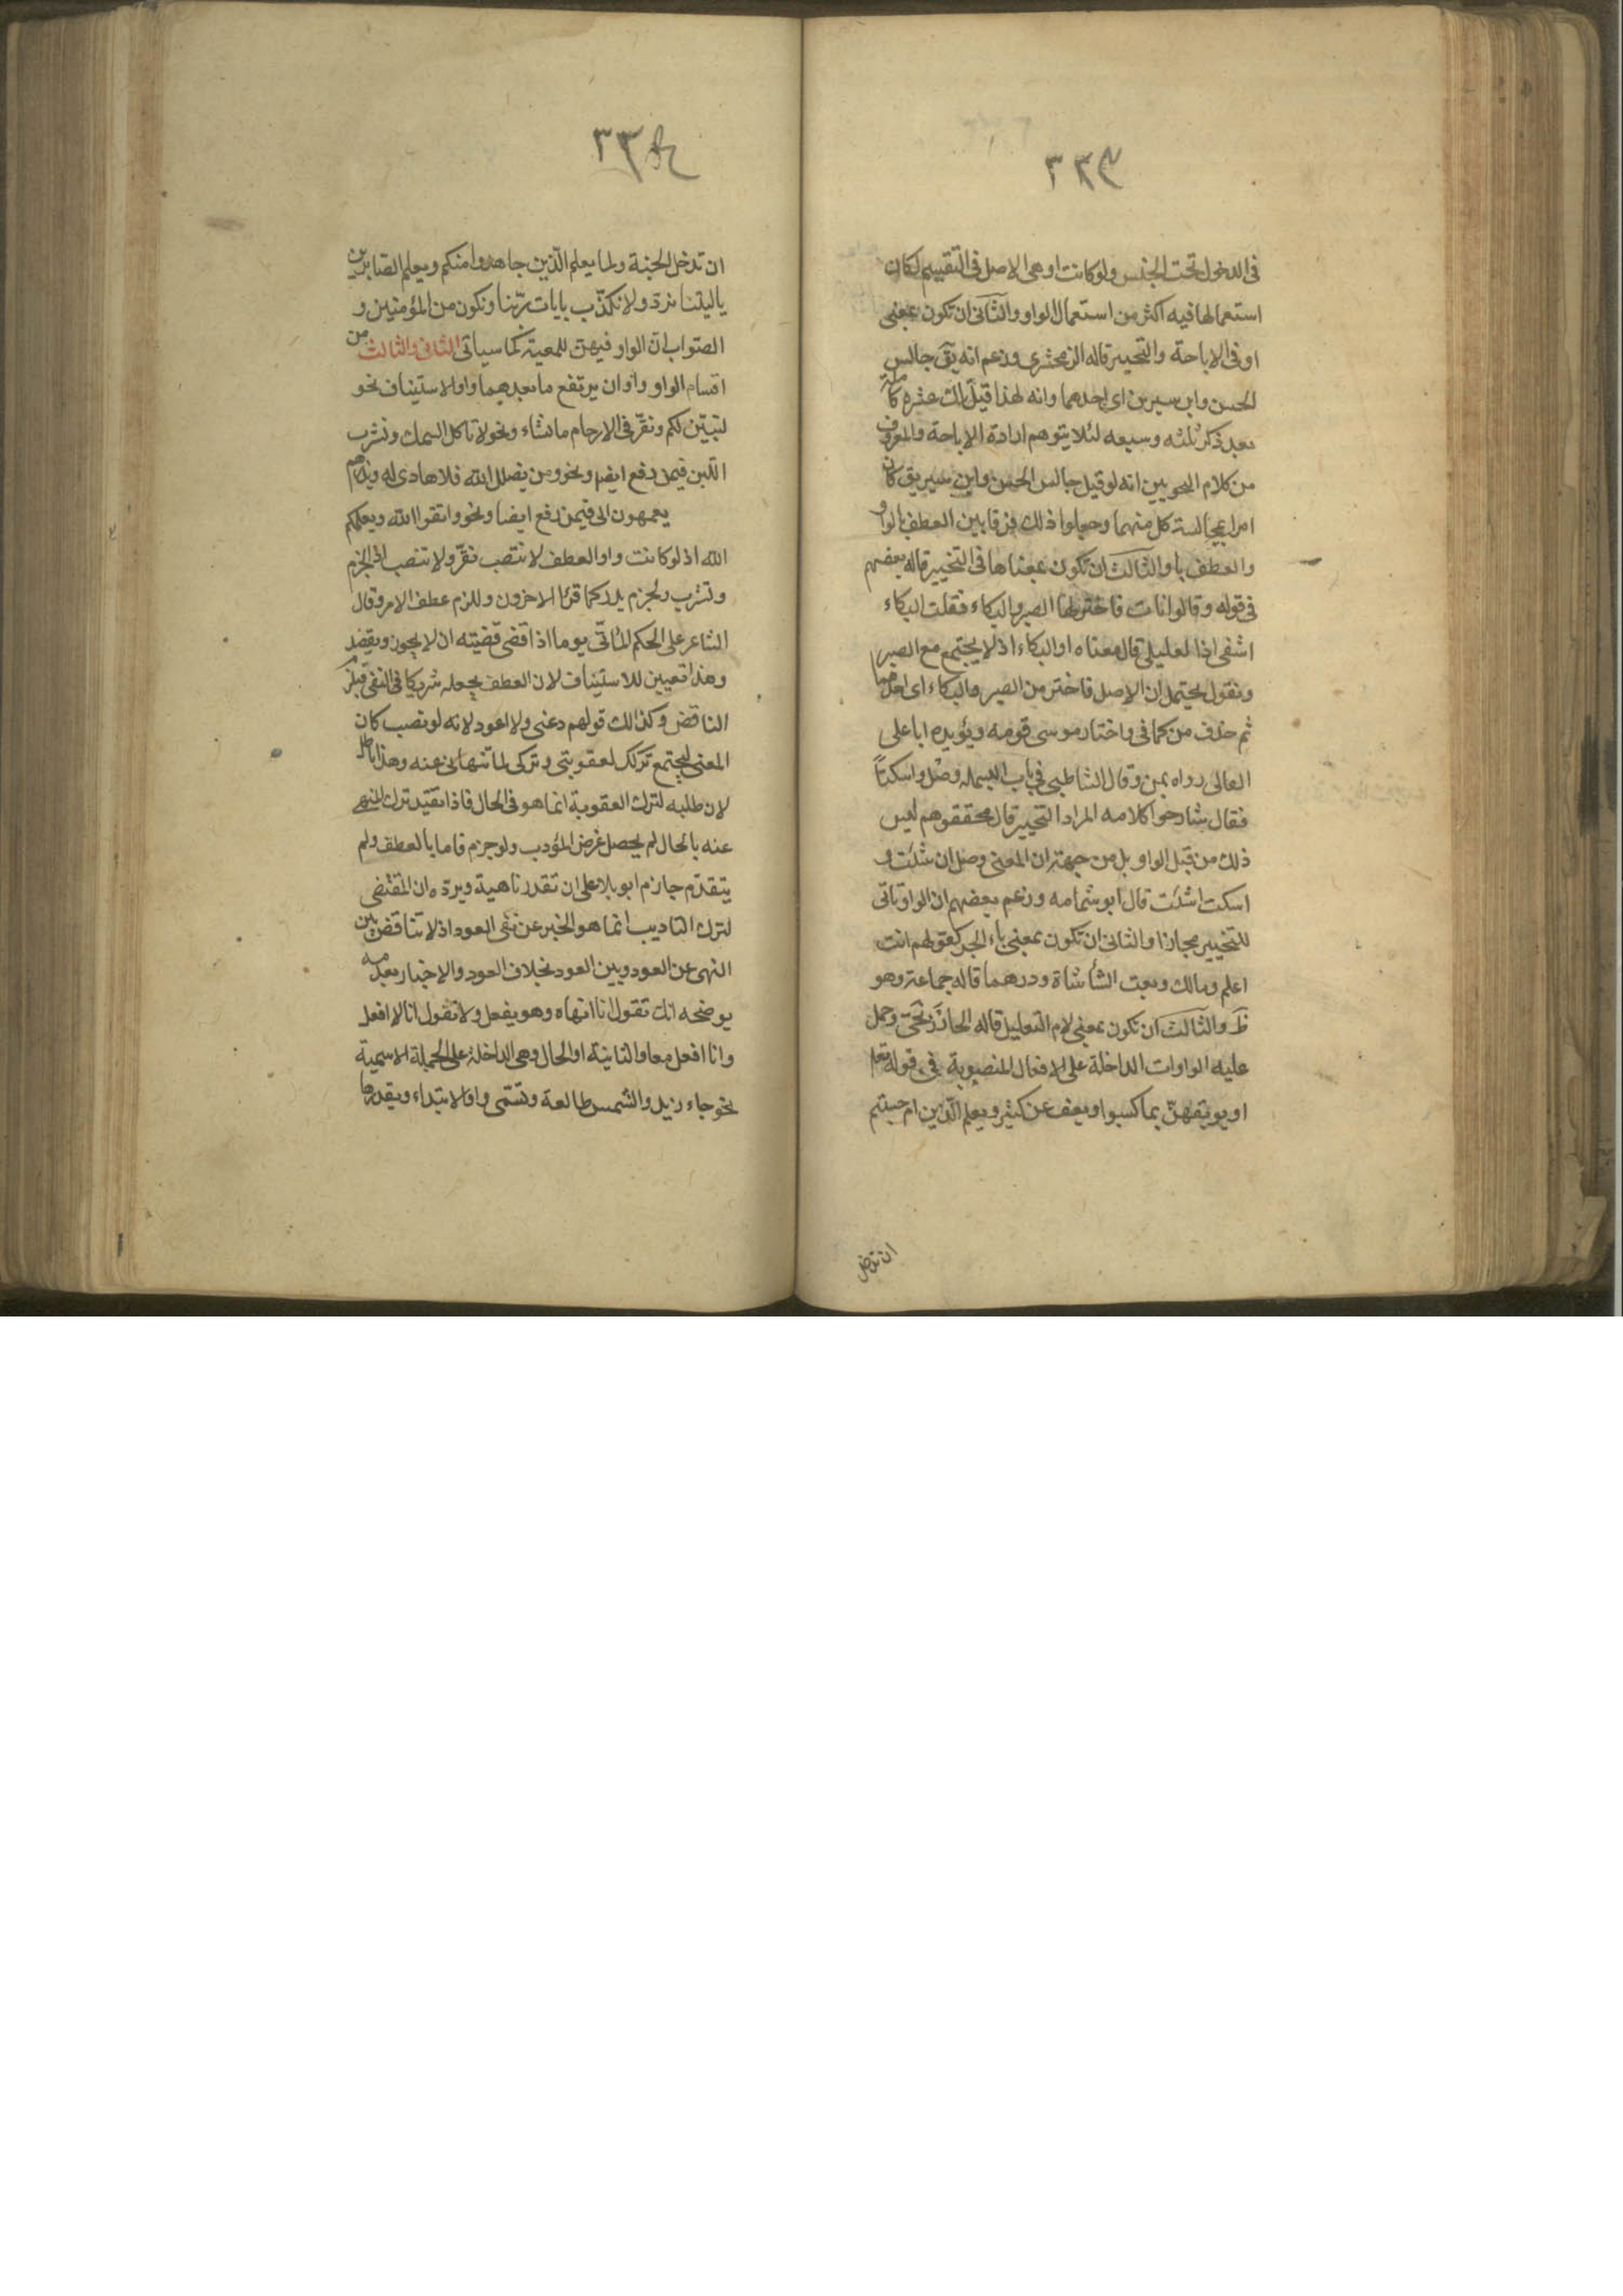 ٣٣٧
فى الدخول تحت الجنس ولو كانت او هى الاصل فى التقييم لكان
استعمالها فيه اكثر من استعمال الواو والثانى ان تكون بمعنى
او فى الاباحة والتخيير قاله الزمخشرى وزعم انه يق جالس
الحسن وابن سيرين اى احدهما وانه لهذا قيل تلك عشرة كاملة
بعد ذكر ثلثه وسبعه لئلا يتوهم ارادة الاباحة والمعروف
من كلام النحويين انه لو قيل جالس الحسن وابن سيرين كان
امرا بمجالسة كل منهما وجعلوا ذلك فرقا بين العطف بالواو
والعطف باو والثالث ان تكون بمعناها فى التخيير قاله بعضهم
فى قوله وقالوا نات فاختر لها الصبر والبكاء فقلت البكاء
اشفى اذا لغليلى قال معناه او البكاء اذ لا يجتمع مع الصبر
ونقول يحتمل ان الاصل فاختر من الصبر والبكاء اى احدهما
ثم حذف من كما فى واختار موسى قومه ويؤيده ابا على
القالى رواه بمن وقال الشاطبى فى باب البسملة وصل واسكتاً
فقال شارحوا كلامه المراد التخيير قال محققوهم ليس
ذلك من قبل الواو بل من جهة ان المعنى وصل ان شئت و
اسكت ان شئت قال ابو شامه وزعم بعضهم ان الواو تاتى
للتخيير مجازا والثانى ان تكون بمعنى باء الجر كقولهم انت
اعلم ومالك وبعت الشأ شاة ودرهما قاله جماعة وهو
ظ والثالث ان تكون بمعنى لام التعليل قاله الخارزنجى وحمل
عليه الواوات الداخلة على الافعال المنصوبة فى قوله تعلم
او يوبقهنّ بما كسبوا ويعف عن كثير ويعلم الذين ام حسبتم
ان تدخل
٣٣٨
ان تدخل الجنة ولما يعلم الذين جاهدوا منكم ويعلم الصابرين
ياليتنا نردّ ولا نكذّب بايات ربّنا ونكون من المؤمنين و
الصواب ان الواو فيهنّ للمعية كما سياتى الثانى والثالث من
اقسام الواو واوان يرتفع ما بعدهما واو الاستيناف نحو
لنبيّن لكم ونقرّ فى الارحام ما نشاء ونحو لا تاكل السمك وتشرب
اللبن فيمن رفع ايضا ونحو ومن يضلل الله فلا هادى له ويذرهم
يعمهون الى فيمن رفع ايضا ونحو واتقوا الله ويعلمكم
الله اذ لو كانت واو العطف لانتصب نقرّ ولانتصب او انجزم
وتشرب ولجزم يذر كما قرا الاخرون وللزم عطف الامر وقال
الشاعر على الحكم الماتّى يوما اذا قضى قضيته ان لا يجوز ويقصد
وهذا تعيين للاستيناف لان العطف يجعله شريكا فى النفى فيلزم
التناقض وكذلك قولهم دعنى ولا اعود لانه لو نصب كان
المعنى ليجتمع تركك لعقوبتى وتركى لما تنهانى عنه وهذا باطل
لان طلبه لترك العقوبة انما هو فى الحال فاذا تقيّد ترك المنهى
عنه بالحال لم يحصل غرض المؤدب ولو جزم فاما بالعطف ولم
يتقدّم جازم او بلا على ان تقدر ناهية ويردّه ان المقتضى
لترك التاديب انما هو الخبر عن نفى العود اذ لا تناقض بين
النهى عن العود وبين العود بخلاف العود والاخبار بعدمه
يوضحه انك تقول انا انهاه وهو يفعل ولا تقول انا لا افعل
وانا افعل معا والثانية او الحال وهى الداخلة على الجملة الاسمية
نحو جاء زيد والشمس طالعة وتسمّى واو الابتداء ويقدرها